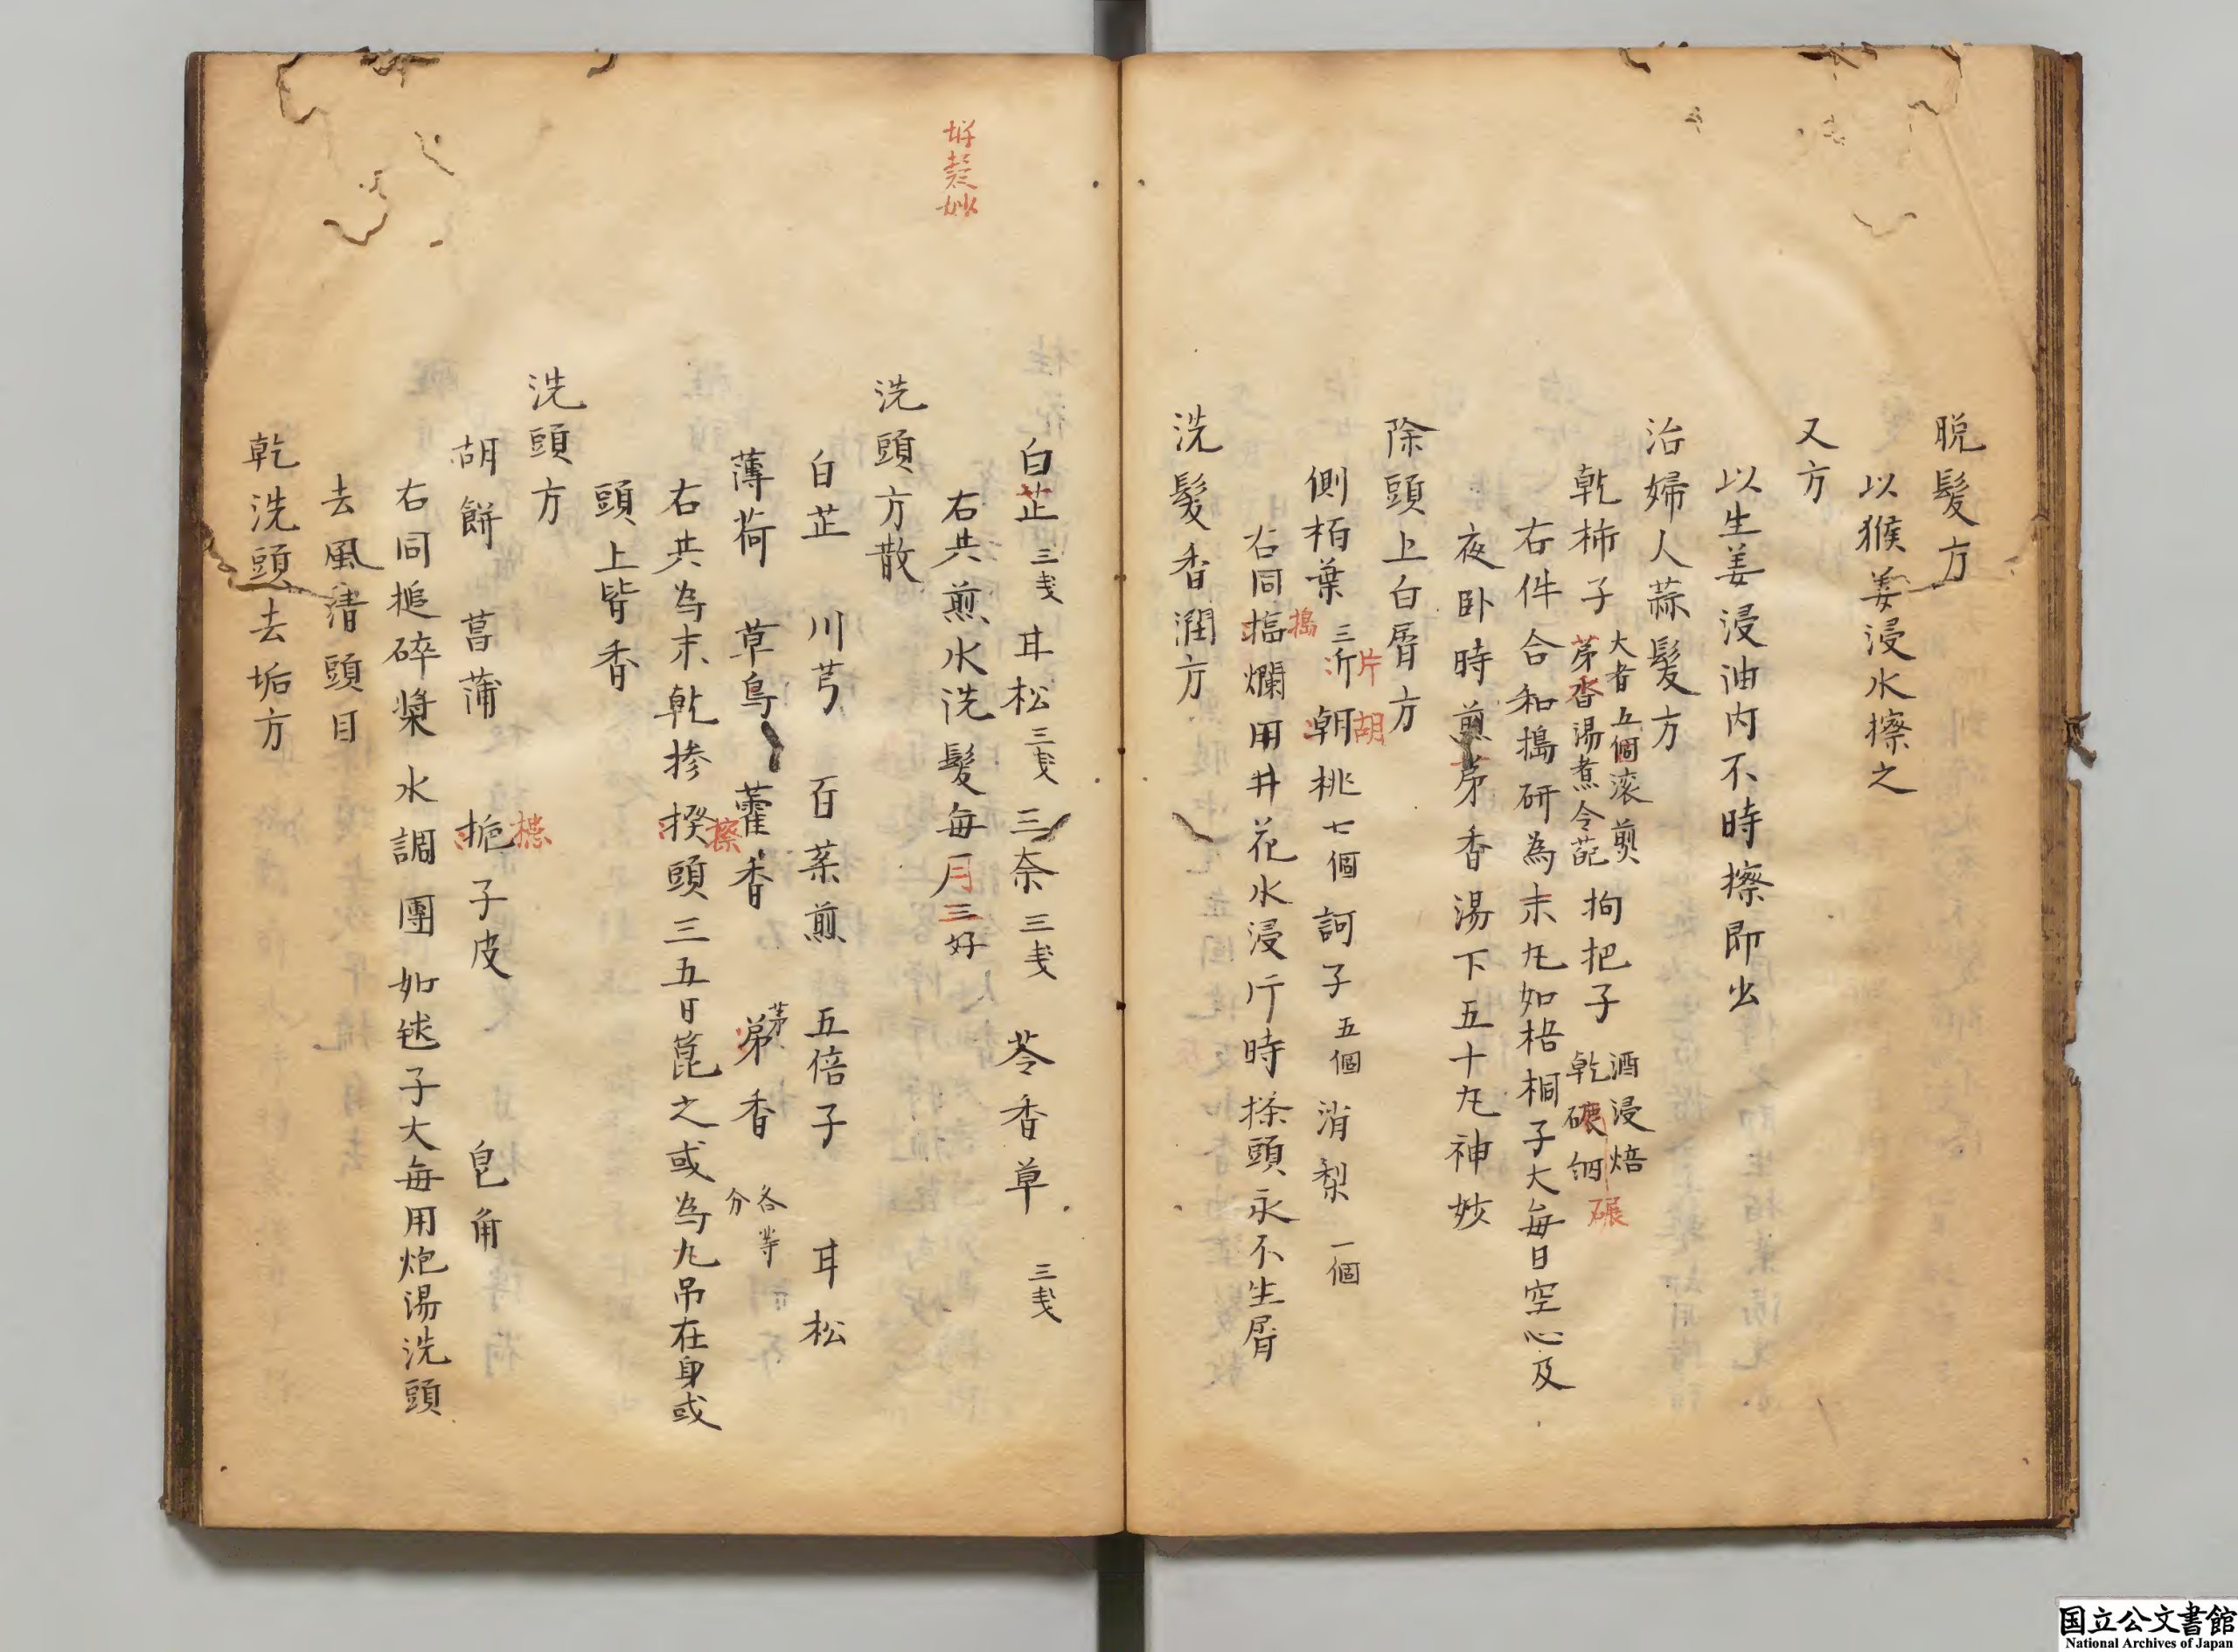 脱髮方
以猴姜浸水擦之
又方
以生姜浸油内不時擦即出
治婦人蒜髮方
乾柿子 大者五個滚煎茅香湯煮令葩 拘把子 酒浸焙乾碾細
碾
右件合和搗研為末丸如梧桐子大每日空心及
夜卧時煎茅香湯下五十丸神妙
除頭上白屑方
側栢葉 三片 胡桃 七個 訶子 五個 消梨 一個
片 胡
搗
右同搗爛用井花水浸片時搽頭永不生屑
洗髮香潤方
白芷 三戋 甘松 三戋 三奈 三戋 苓香草 三戋
右共煎水洗髮每月三好
洗頭方散
白芷 川芎 百葯煎 五倍子 甘松
薄荷 草烏 藿香 茅香 各等分
右共為末乾掺擦頭三五日篦之或為丸吊在身或
擦
頭上皆香
洗頭方
胡餅 菖蒲 槵子皮 皂角
槵
右同搥碎漿水調團如毬子大每用炮湯洗頭
去風清頭目
乾洗頭去垢方
国立公文書館
National Archives of Japan